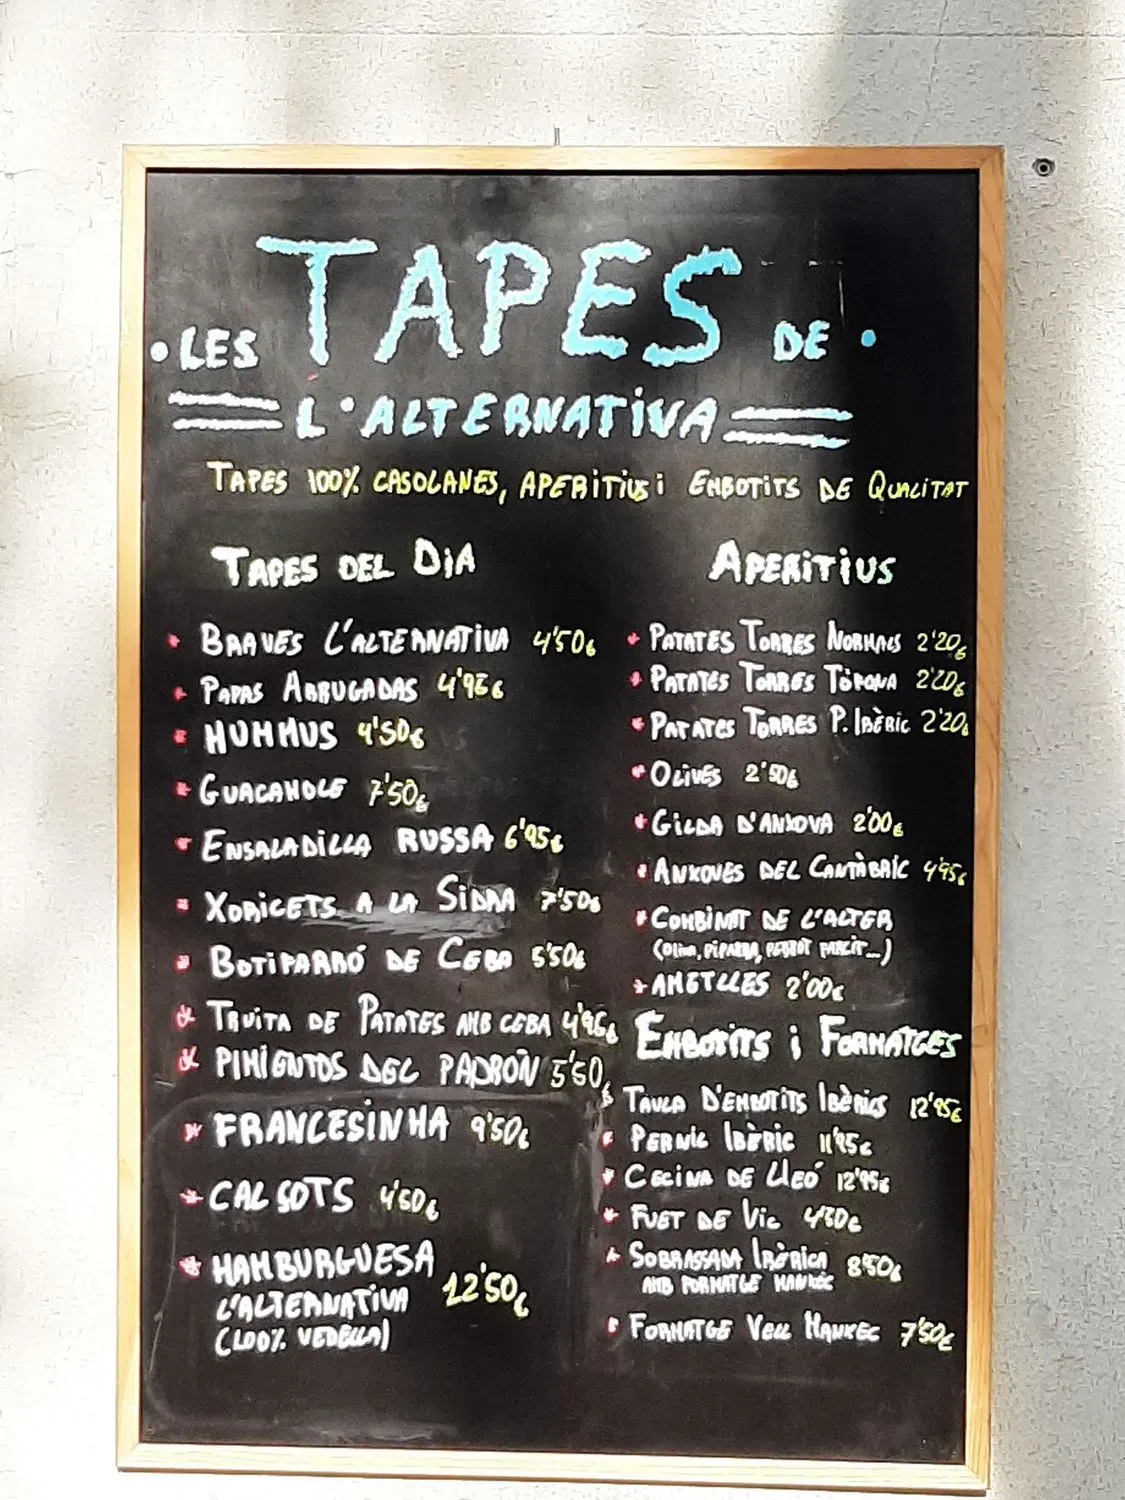 • LES TAPES DE •
L'ALTERNATIVA
TAPES 100% CASOLANES, APERITIUS i EMBOTITS DE QUALITAT
TAPES DEL DIA
BRAVES L'ALTERNATIVA 4'50€
PAPAS ARRUGADAS 4'95€
HUMMUS 4'50€
GUACAMOLE 7'50€
ENSALADILLA RUSSA 6'95€
XORICETS A LA SIDRA 7'50€
BOTIFARRÓ DE CEBA 5'50€
TRUITA DE PATATES AMB CEBA 4'95€
PIMIENTOS DEL PADRÓN 5'50€
FRANCESINHA 9'50€
CALSOTS 4'50€
HAMBURGUESA
L'ALTERNATIVA 12'50€
(100% VEDELLA)
APERITIUS
PATATES TORRES NORMALS 2'20€
PATATES TORRES TÒFONA 2'20€
PATATES TORRES P. IBÈRIC 2'20€
OLIVES 2'50€
GILDA D'ANXOVA 2'00€
ANXOVES DEL CANTÀBRIC 4'95€
COMBINAT DE L'ALTER
(OLIVA, PIPARRA, PEBROT FARCIT...)
AMETLLES 2'00€
EMBOTITS i FORMATGES
TAULA D'EMBOTITS IBÈRICS 12'95€
PERNIL IBÈRIC 11'95€
CECINA DE LLEÓ 12'95€
FUET DE VIC 4'50€
SOBRASSADA IBÈRICA 8'50€
AMB FORMATGE MANXEC
FORMATGE VELL MANXEC 7'50€